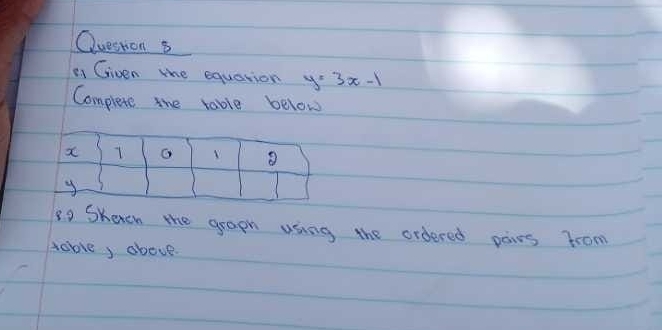 Question 3
Given the equation y = 3x - 1
Complete the table below
x 0 1 2
y
Sketch the graph using the ordered pairs from
table, above.